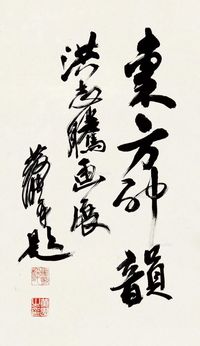 東方神韻
洪志騰画展
題